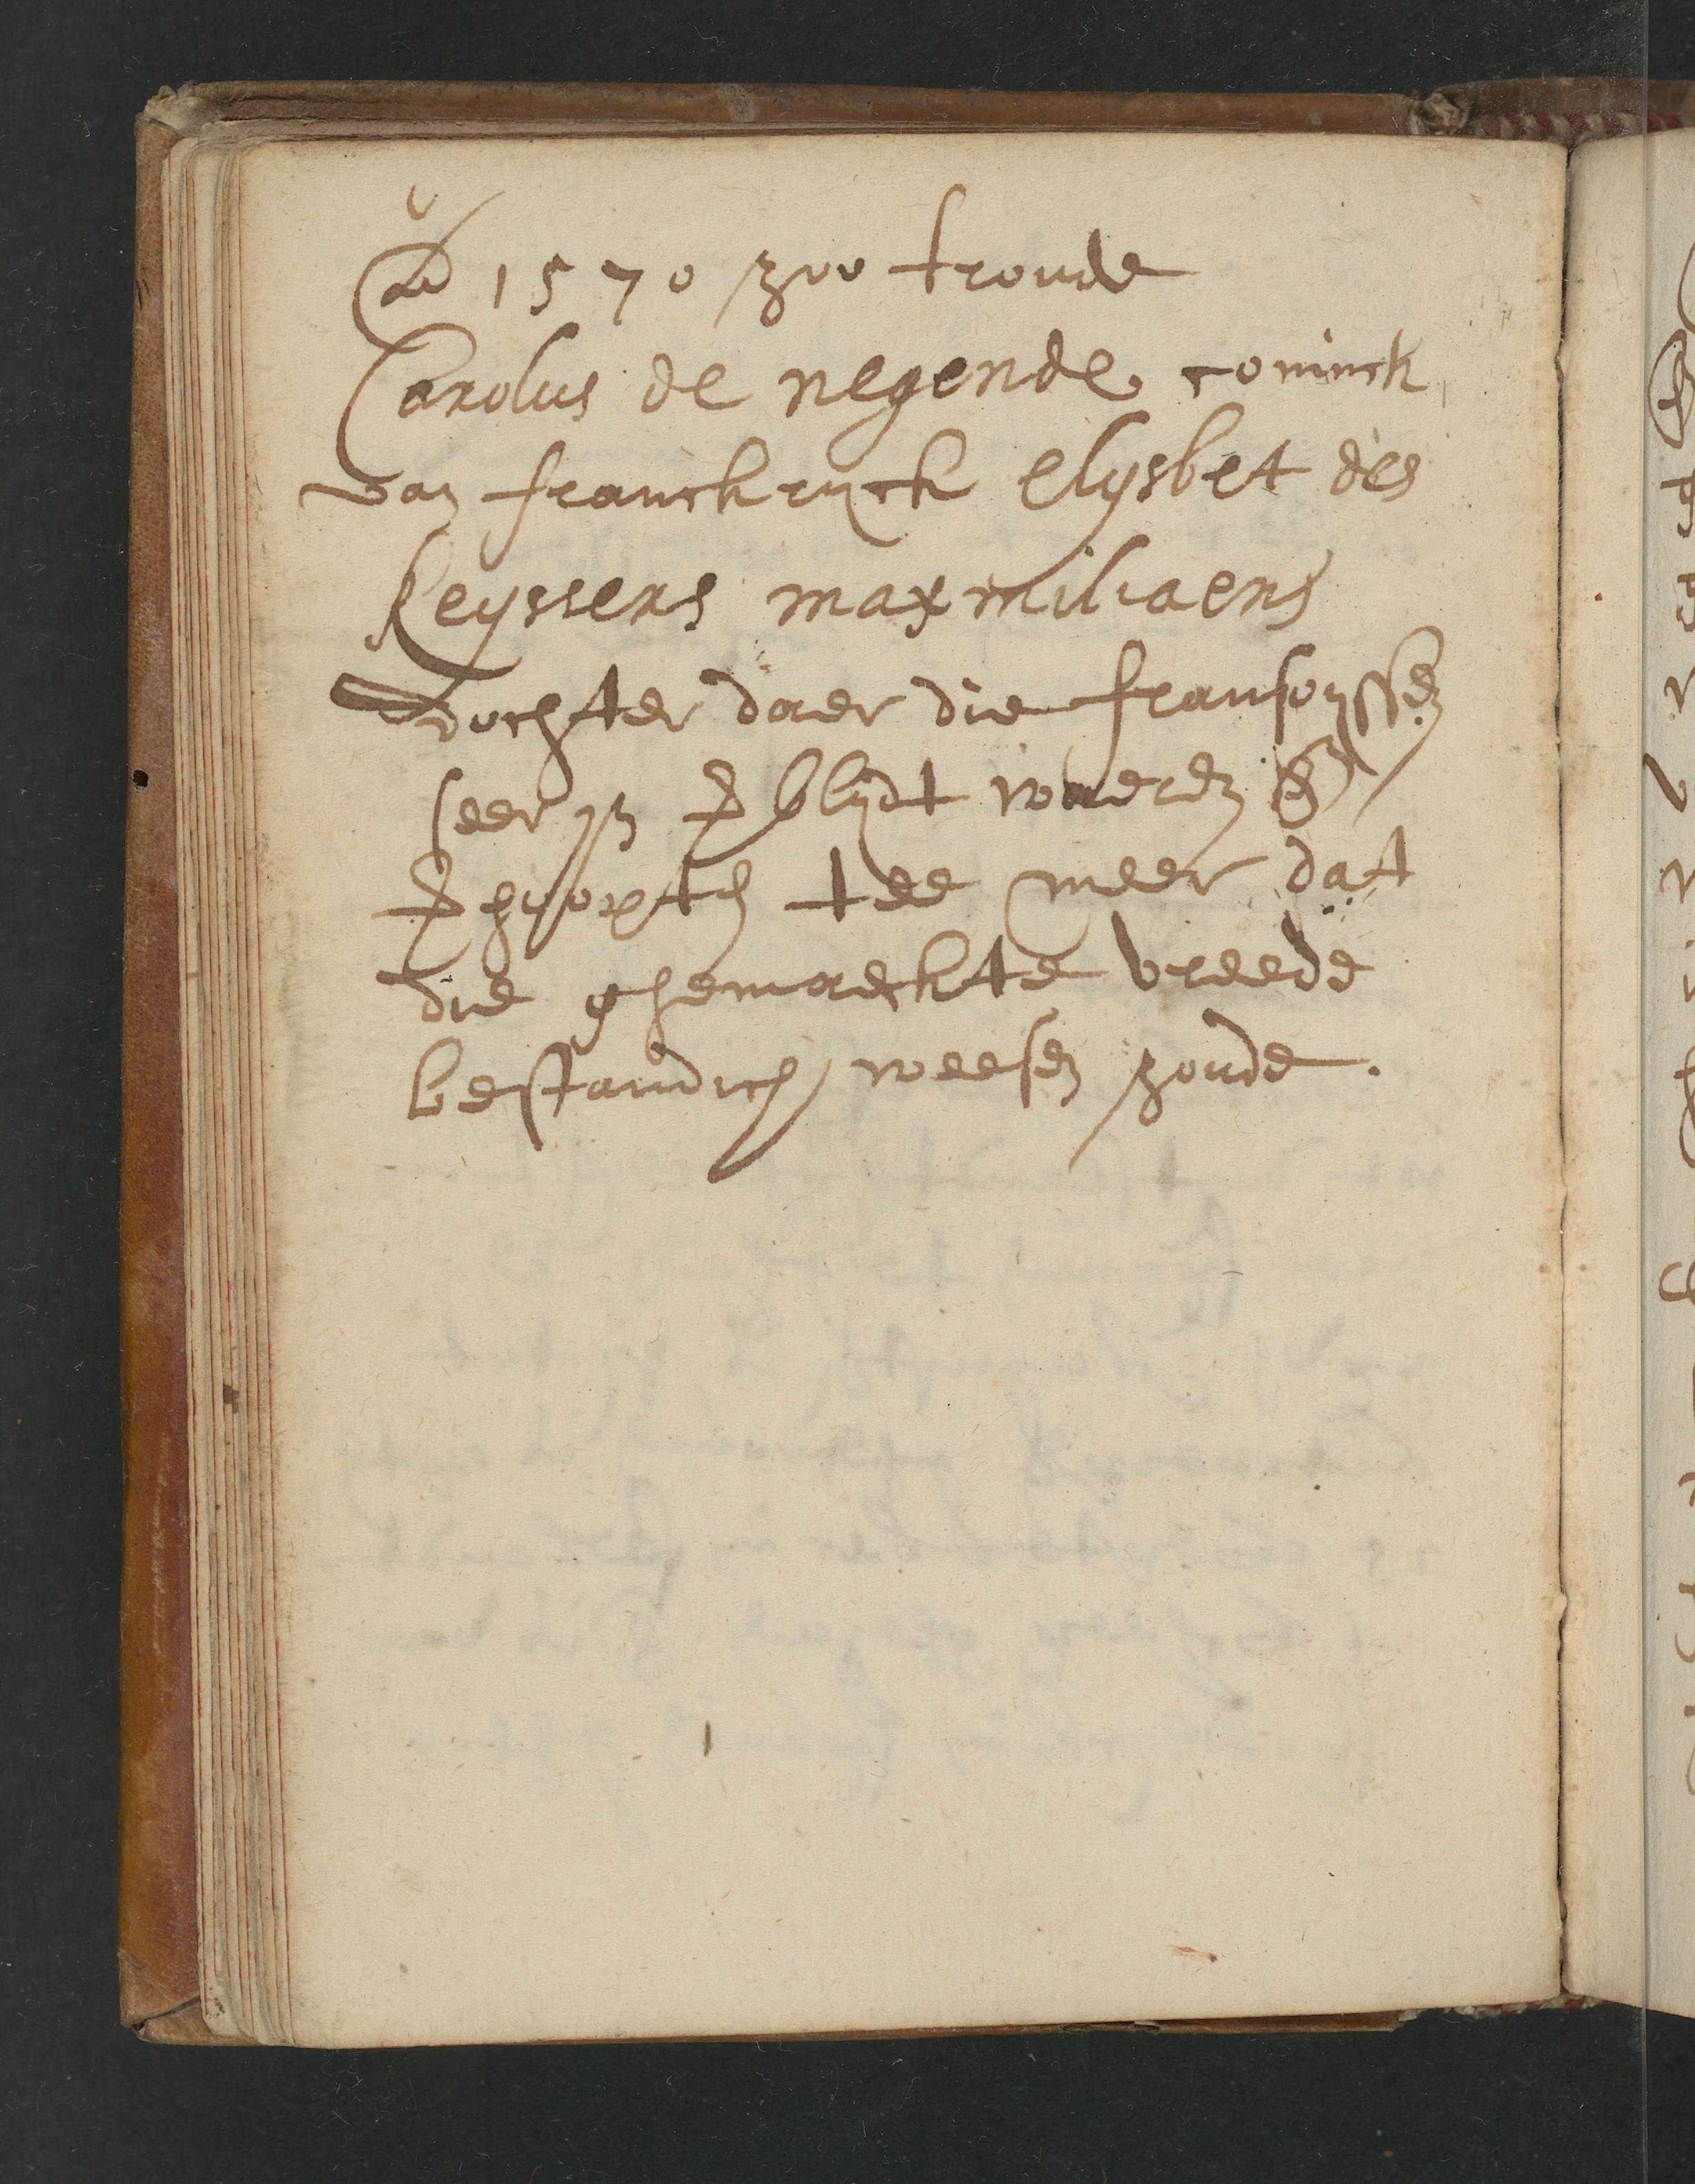 Ao 1570 zoo troude
Carolus de negende coninck
van franckryck elysbet des
keyssers maxmiliaens
dochter daer die fransoyssen
seer in verblijdt waeren en
verhoopten tee meer dat
die ghemaeckte vreede
bestandich weesen zoude.